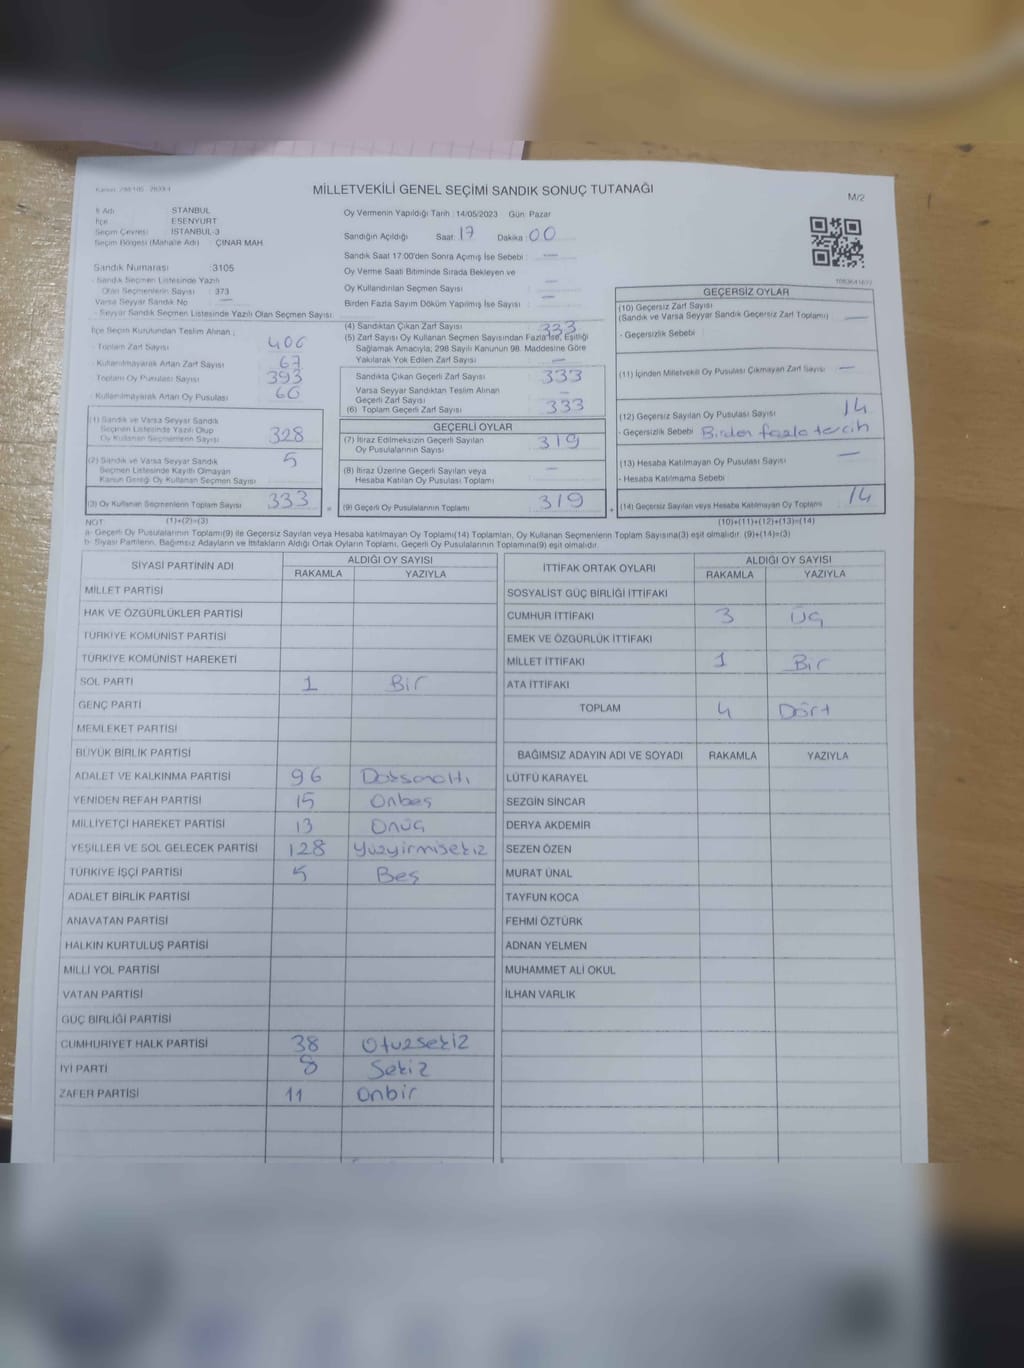 MİLLETVEKİLİ GENEL SEÇİMİ SANDIK SONUÇ TUTANAĞI
M/2
İl Adı STANBUL
İlçe ESENYURT
Seçim Çevresi İSTANBUL-3
Seçim Bölgesi (Mahalle Adı) ÇINAR MAH.
Oy Vermenin Yapıldığı Tarih : 14/05/2023 Gün: Pazar
Sandığın Açıldığı Saat: 17 Dakika: 00
Sandık Saat 17:00'den Sonra Açımış İse Sebebi : —
Oy Verme Saati Bitiminde Sırada Bekleyen ve
Oy Kullandırılan Seçmen Sayısı : —
Birden Fazla Sayım Döküm Yapılmış İse Sayısı : —
Sandık Numarası 3105
- Sandık Seçmen Listesinde Yazılı
Olan Seçmenlerin Sayısı : 373
Varsa Seyyar Sandık No —
- Seyyar Sandık Seçmen Listesinde Yazılı Olan Seçmen Sayısı :
İlçe Seçim Kurulundan Teslim Alınan ;
- Toplam Zarf Sayısı 406
- Kullanılmayarak Artan Zarf Sayısı 67
- Toplam Oy Pusulası Sayısı 393
- Kullanılmayarak Artan Oy Pusulası 60
(1) Sandık ve Varsa Seyyar Sandık
Seçmen Listesinde Yazılı Olup
Oy Kullanan Seçmenlerin Sayısı 328
(2) Sandık ve Varsa Seyyar Sandık
Seçmen Listesinde Kayıtlı Olmayan
Kanun Gereği Oy Kullanan Seçmen Sayısı 5
(3) Oy Kullanan Seçmenlerin Toplam Sayısı 333
(4) Sandıktan Çıkan Zarf Sayısı 333
(5) Zarf Sayısı Oy Kullanan Seçmen Sayısından Fazla İse, Eşitliği
Sağlamak Amacıyla; 298 Sayılı Kanunun 98. Maddesine Göre
Yakılarak Yok Edilen Zarf Sayısı —
Sandıkta Çıkan Geçerli Zarf Sayısı 333
Varsa Seyyar Sandıktan Teslim Alınan
Geçerli Zarf Sayısı —
(6) Toplam Geçerli Zarf Sayısı 333
GEÇERLİ OYLAR
(7) İtiraz Edilmeksizin Geçerli Sayılan
Oy Pusulalarının Sayısı 319
(8) İtiraz Üzerine Geçerli Sayılan veya
Hesaba Katılan Oy Pusulası Toplamı —
= (9) Geçerli Oy Pusulalarının Toplamı 319
GEÇERSİZ OYLAR
(10) Geçersiz Zarf Sayısı
(Sandık ve Varsa Seyyar Sandık Geçersiz Zarf Toplamı) —
- Geçersizlik Sebebi :
(11) İçinden Milletvekili Oy Pusulası Çıkmayan Zarf Sayısı —
(12) Geçersiz Sayılan Oy Pusulası Sayısı 14
- Geçersizlik Sebebi Birden fazla tercih
(13) Hesaba Katılmayan Oy Pusulası Sayısı —
- Hesaba Katılmama Sebebi
+ (14) Geçersiz Sayılan veya Hesaba Katılmayan Oy Toplamı 14
NOT: (1)+(2)=(3) (10)+(11)+(12)+(13)=(14)
a- Geçerli Oy Pusulalarının Toplamı(9) ile Geçersiz Sayılan veya Hesaba katılmayan Oy Toplamı(14) Toplamları, Oy Kullanan Seçmenlerin Toplam Sayısına(3) eşit olmalıdır. (9)+(14)=(3)
b- Siyasi Partilerin, Bağımsız Adayların ve İttifakların Aldığı Ortak Oyların Toplamı, Geçerli Oy Pusulalarının Toplamına(9) eşit olmalıdır.
SİYASİ PARTİNİN ADI ALDIĞI OY SAYISI
RAKAMLA YAZIYLA
MİLLET PARTİSİ
HAK VE ÖZGÜRLÜKLER PARTİSİ
TÜRKİYE KOMÜNİST PARTİSİ
TÜRKİYE KOMÜNİST HAREKETİ
SOL PARTİ 1 Bir
GENÇ PARTİ
MEMLEKET PARTİSİ
BÜYÜK BİRLİK PARTİSİ
ADALET VE KALKINMA PARTİSİ 96 Doksanaltı
YENİDEN REFAH PARTİSİ 15 Onbeş
MİLLİYETÇİ HAREKET PARTİSİ 13 Onüç
YEŞİLLER VE SOL GELECEK PARTİSİ 128 Yüzyirmisekiz
TÜRKİYE İŞÇİ PARTİSİ 5 Beş
ADALET BİRLİK PARTİSİ
ANAVATAN PARTİSİ
HALKIN KURTULUŞ PARTİSİ
MİLLİ YOL PARTİSİ
VATAN PARTİSİ
GÜÇ BİRLİĞİ PARTİSİ
CUMHURİYET HALK PARTİSİ 38 Otuzsekiz
İYİ PARTİ 8 Sekiz
ZAFER PARTİSİ 11 Onbir
İTTİFAK ORTAK OYLARI ALDIĞI OY SAYISI
RAKAMLA YAZIYLA
SOSYALİST GÜÇ BİRLİĞİ İTTİFAKI
CUMHUR İTTİFAKI 3 Üç
EMEK VE ÖZGÜRLÜK İTTİFAKI
MİLLET İTTİFAKI 1 Bir
ATA İTTİFAKI
TOPLAM 4 Dört
BAĞIMSIZ ADAYIN ADI VE SOYADI RAKAMLA YAZIYLA
LÜTFÜ KARAYEL
SEZGİN SİNCAR
DERYA AKDEMİR
SEZEN ÖZEN
MURAT ÜNAL
TAYFUN KOCA
FEHMİ ÖZTÜRK
ADNAN YELMEN
MUHAMMET ALİ OKUL
İLHAN VARLIK